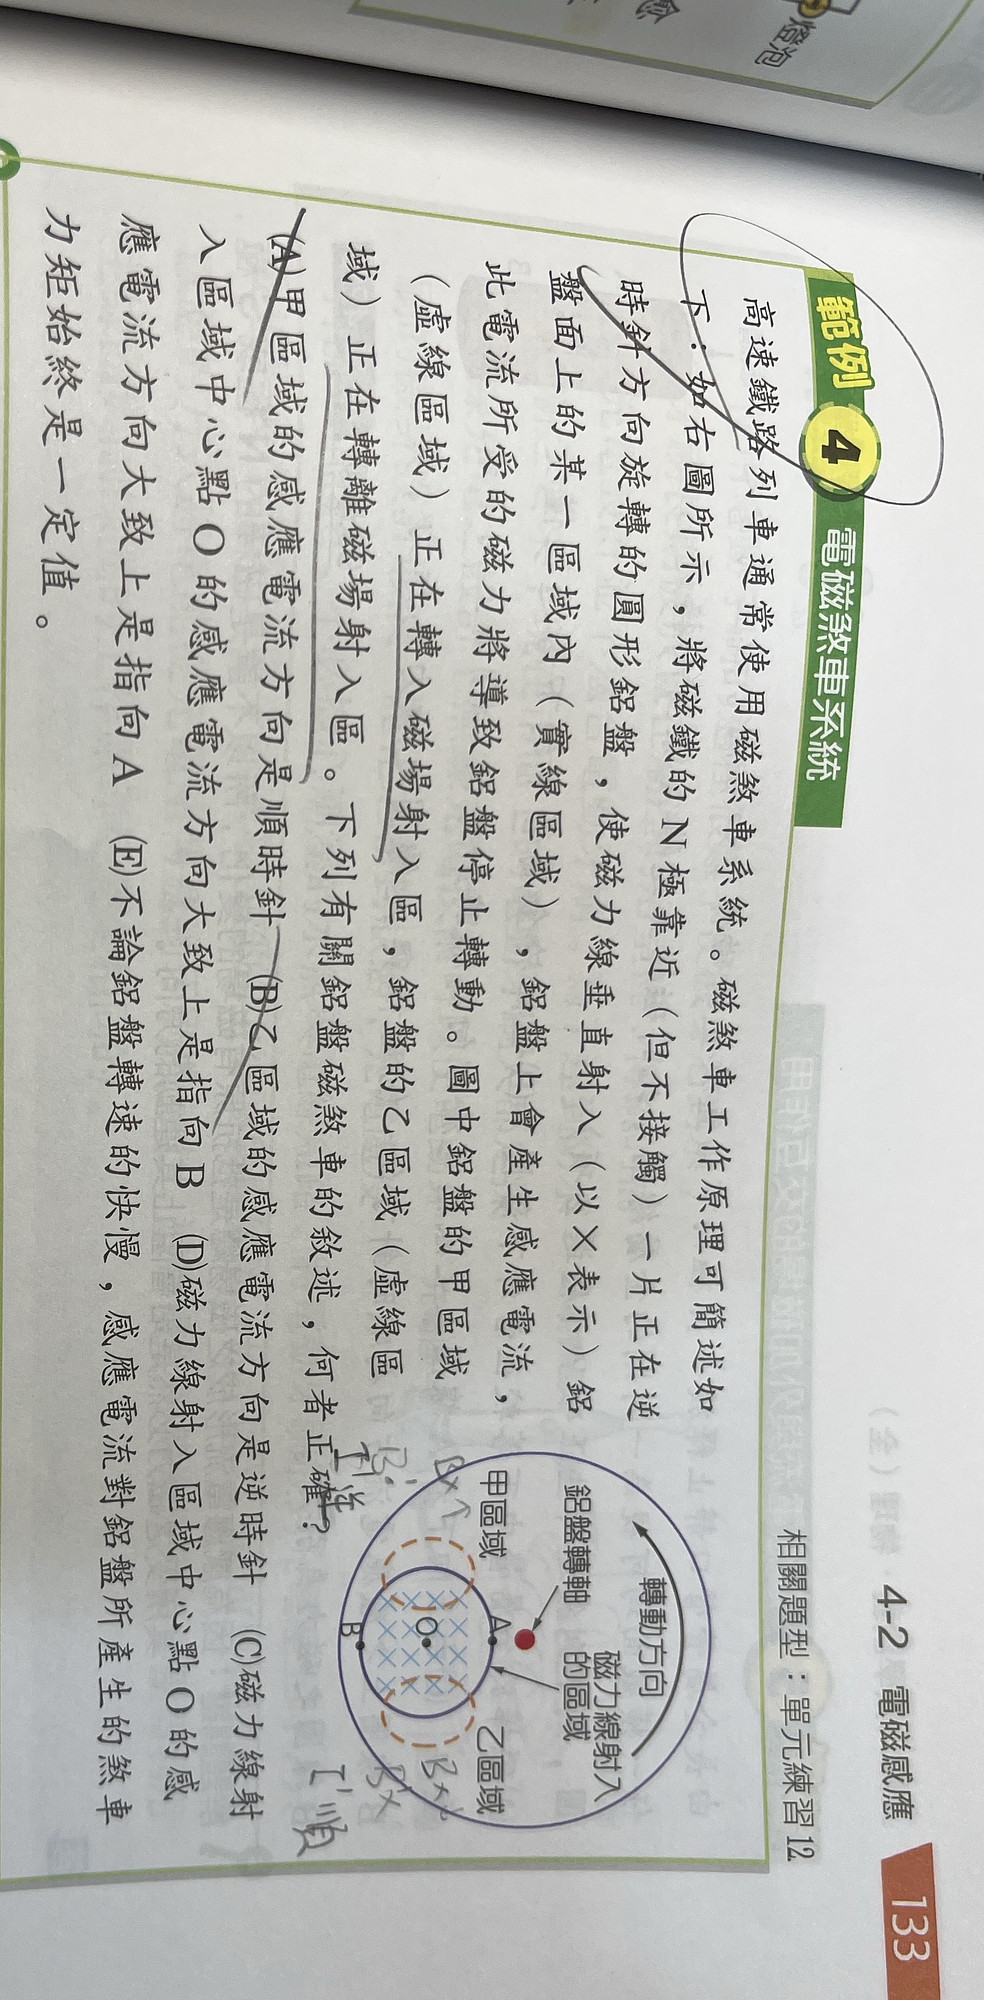 燈泡
4-2 電磁感應 133
相關題型：單元練習 12
範例 4 電磁煞車系統
高速鐵路列車通常使用磁煞車系統。磁煞車工作原理可簡述如
下：如右圖所示，將磁鐵的N極靠近（但不接觸）一片正在逆
時針方向旋轉的圓形鋁盤，使磁力線垂直射入（以×表示）鋁
盤面上的某一區域內（實線區域），鋁盤上會產生感應電流，
此電流所受的磁力將導致鋁盤停止轉動。圖中鋁盤的甲區域
（虛線區域）正在轉入磁場射入區，鋁盤的乙區域（虛線區
域）正在轉離磁場射入區。下列有關鋁盤磁煞車的敘述，何者正確？
(A)甲區域的感應電流方向是順時針 (B)乙區域的感應電流方向是逆時針 (C)磁力線射
入區域中心點O的感應電流方向大致上是指向B (D)磁力線射入區域中心點O的感
應電流方向大致上是指向A (E)不論鋁盤轉速的快慢，感應電流對鋁盤所產生的煞車
力矩始終是一定值。
轉動方向
鋁盤轉軸
磁力線射入
的區域
甲區域
乙區域
A
O
B
B×↑
B'·
I'逆
B×↓
B'×
I'順